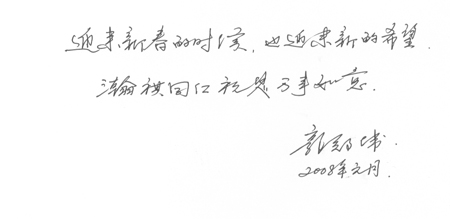 迎来新春的时候，也迎来新的希望．
瀚祺同仁祝您万事如意．
郭伟．
2008年元月．